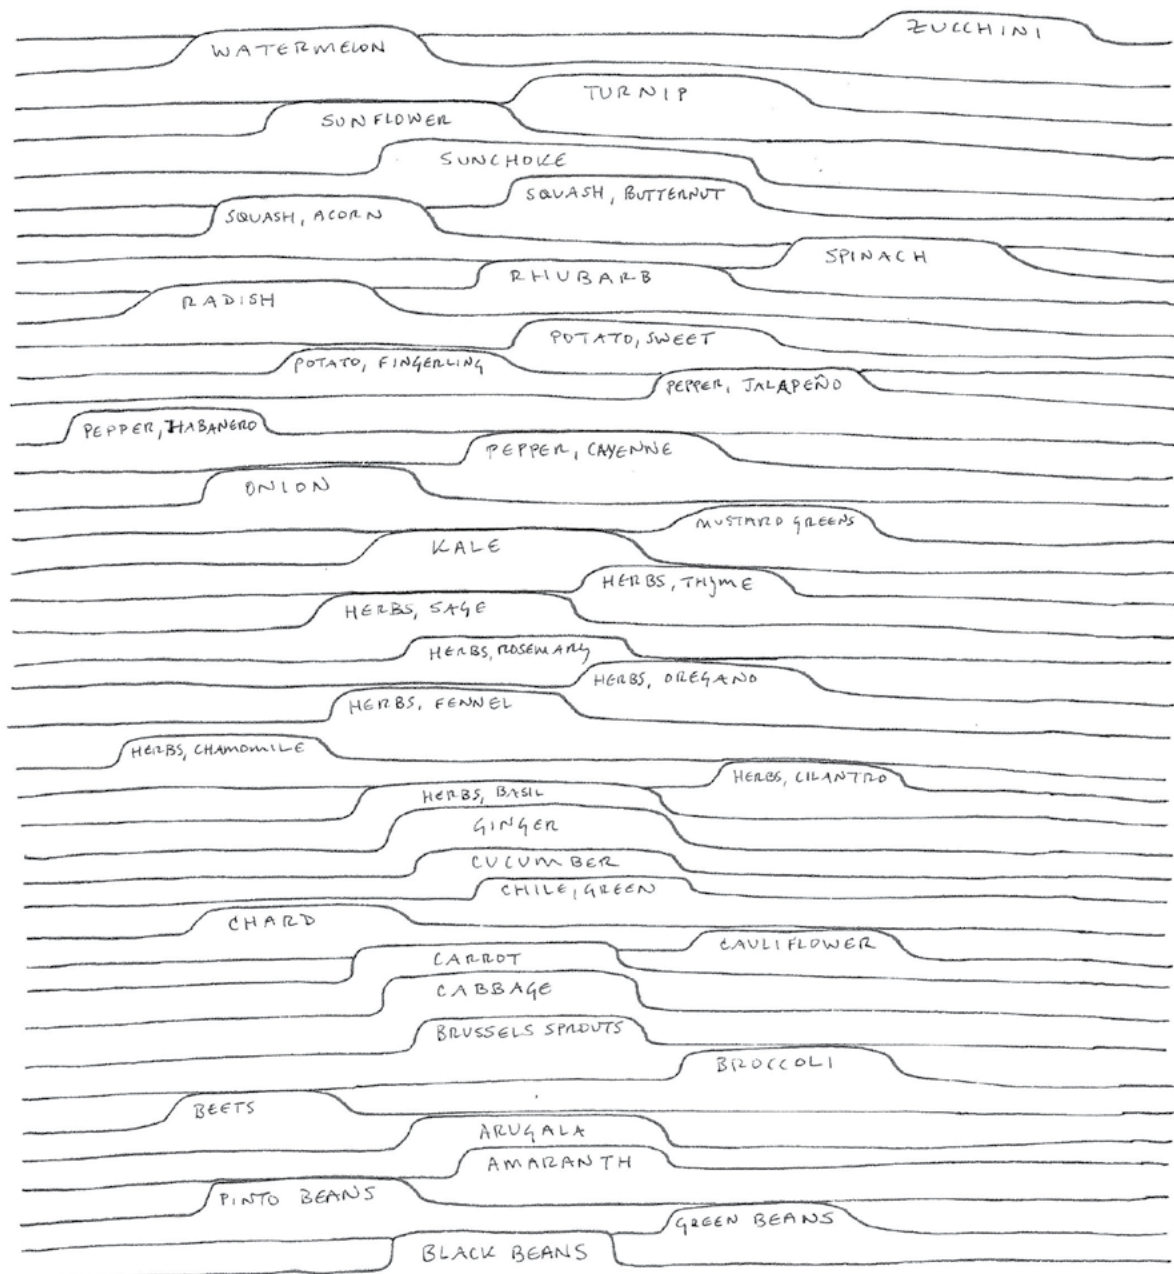 ZUCCHINI
WATERMELON
TURNIP
SUNFLOWER
SUNCHOKE
SQUASH, BUTTERNUT
SQUASH, ACORN
SPINACH
RHUBARB
RADISH
POTATO, SWEET
POTATO, FINGERLING
PEPPER, JALAPEÑO
PEPPER, HABANERO
PEPPER, CAYENNE
ONION
MUSTARD GREENS
KALE
HERBS, THYME
HERBS, SAGE
HERBS, ROSEMARY
HERBS, OREGANO
HERBS, FENNEL
HERBS, CHAMOMILE
HERBS, CILANTRO
HERBS, BASIL
GINGER
CUCUMBER
CHILE, GREEN
CHARD
CAULIFLOWER
CARROT
CABBAGE
BRUSSELS SPROUTS
BROCCOLI
BEETS
ARUGALA
AMARANTH
PINTO BEANS
GREEN BEANS
BLACK BEANS